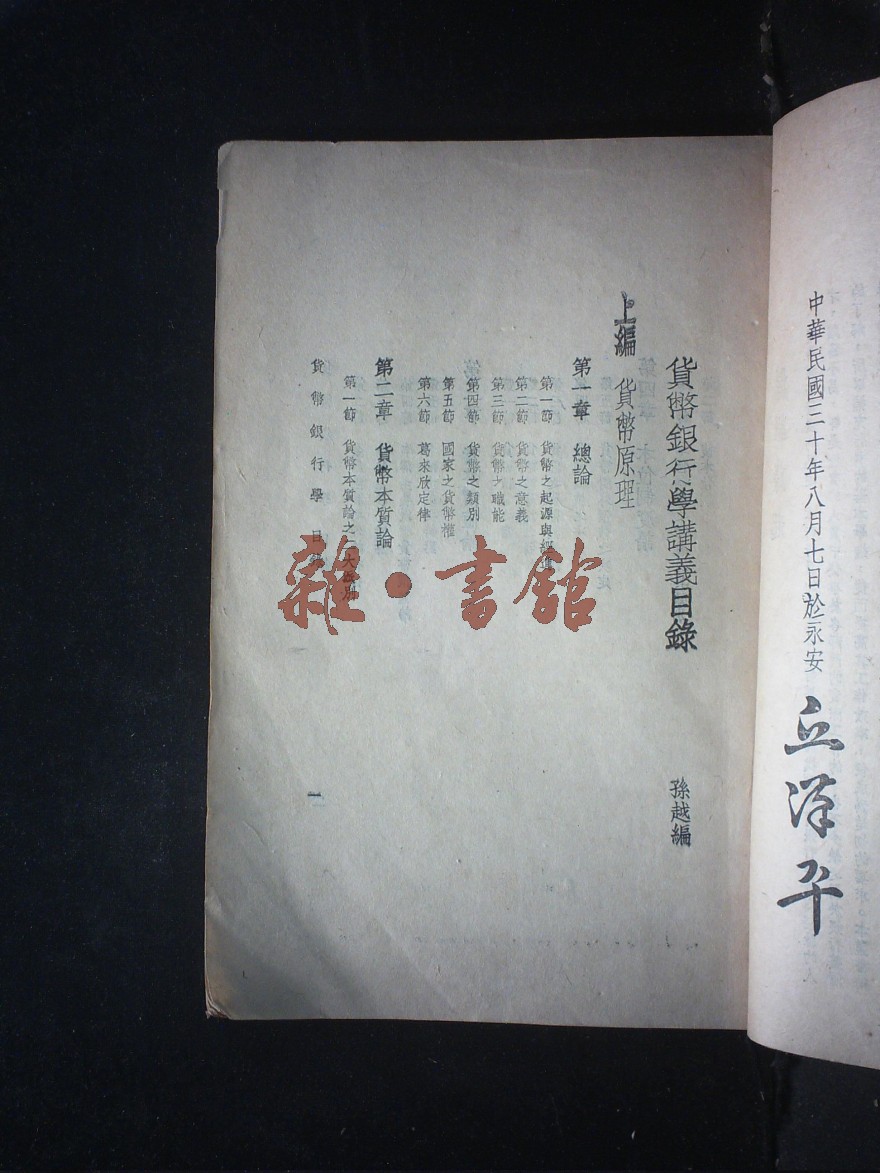 中華民國三十年八月七日於永安
丘漢平
貨幣銀行學講義目錄
孫越編
上編 貨幣原理
第一章 總論
第一節 貨幣之起源與
第二節 貨幣之意義
第三節 貨幣之職能
第四節 貨幣之類別
第五節 國家之貨幣權
第六節 葛來欣定律
第二章 貨幣本質論
第一節 貨幣本質論之二大派別
貨幣銀行學 目錄
一
雜·書館